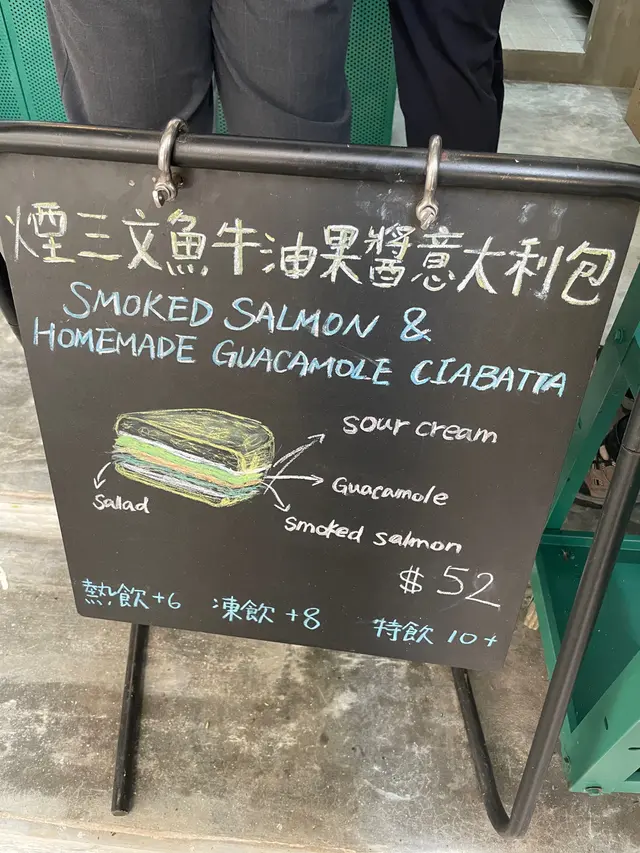 煙三文魚牛油果醬意大利包
SMOKED SALMON &
HOMEMADE GUACAMOLE CIABATTA
sour cream
Guacamole
Sallad
smoked salmon
$ 52
熱飲+6 凍飲 +8 特飲 10+